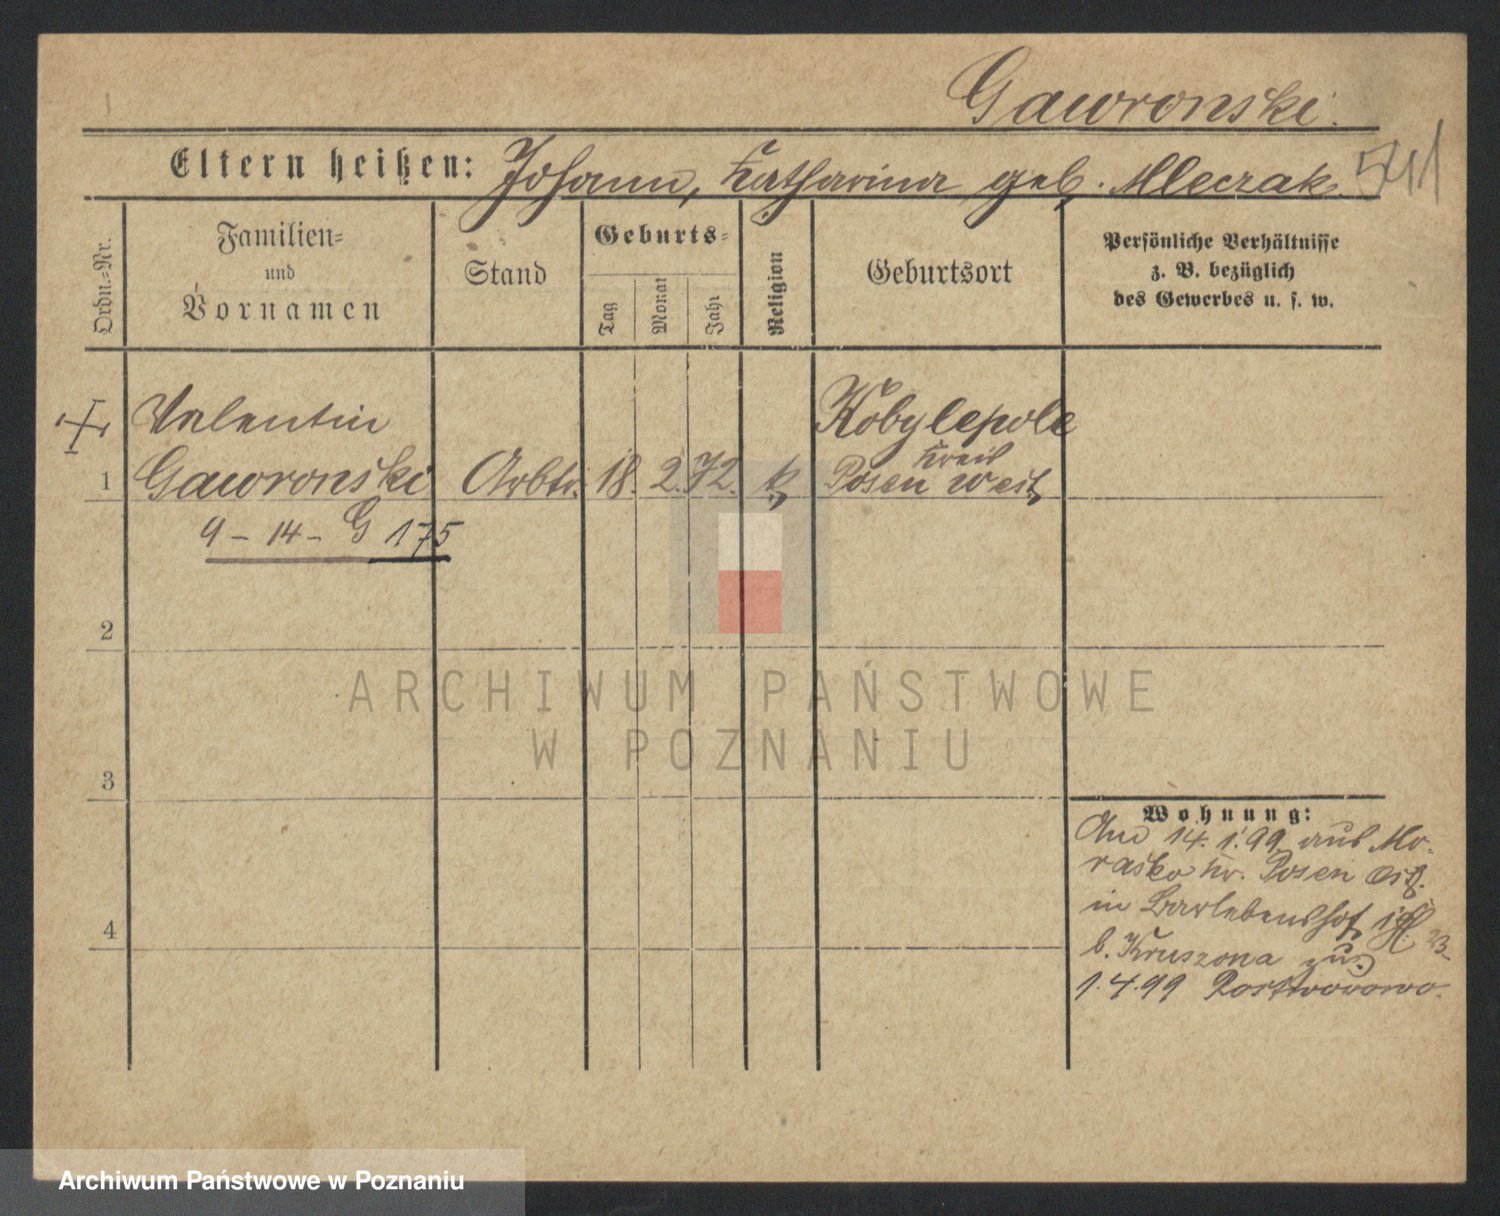 Gawronski.
Eltern heißen: Johann, Katharina geb. Mleczak 541
Ordn.-Nr.
Familien- und Vornamen
Stand
Geburts-
Tag
Monat
Jahr
Religion
Geburtsort
Persönliche Verhältnisse
z. B. bezüglich
des Gewerbes u. s. w.
Valentin
Kobylepole
Kreis
1 Gawronski Arbtr. 18. 2. 72. k Posen West
9 - 14 - G 175
2
ARCHIWUM PAŃSTWOWE
W POZNANIU
3
Wohnung:
Am 14. 1. 99 aus Mo-
rasko Kr. Posen Ost
in Barlebenshof
b. Kruszona zu
1.4.99
4
Archiwum Państwowe w Poznaniu